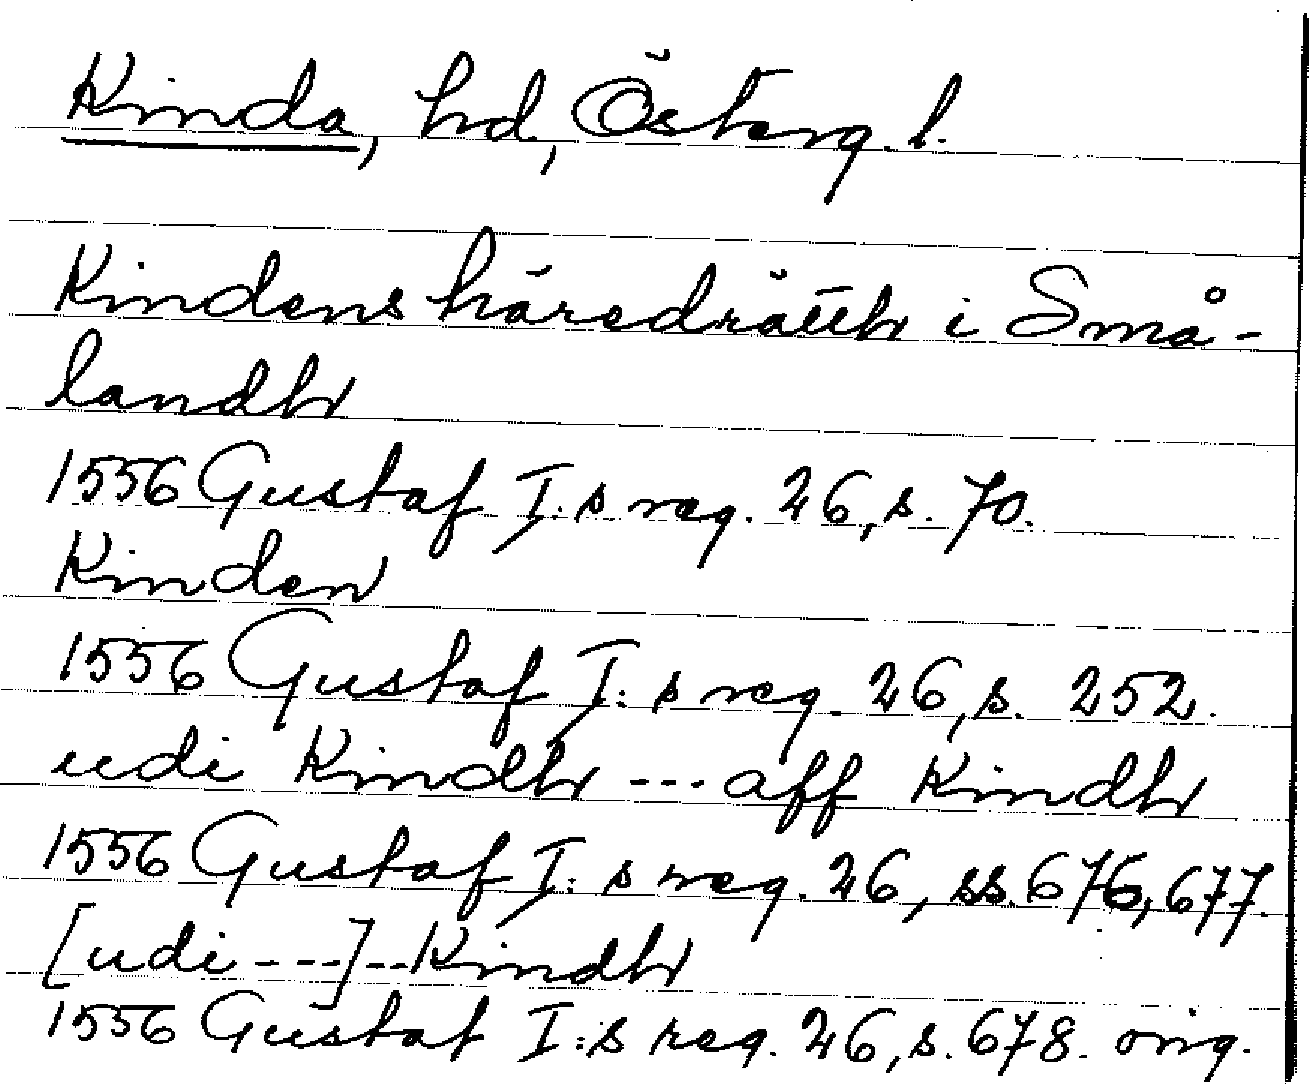 Kinda, hd, Österg. l.
Kindens häredrätth i Små-
landh
1556 Gustaf I:s reg. 26, s. 70.
Kinden
1556 Gustaf I:s reg. 26, s. 252.
udi Kindh --- aff Kindh
1556 Gustaf I:s reg. 26, ss. 676, 677.
[udi ---] -- Kindh
1556 Gustaf I:s reg. 26, s. 678. orig.